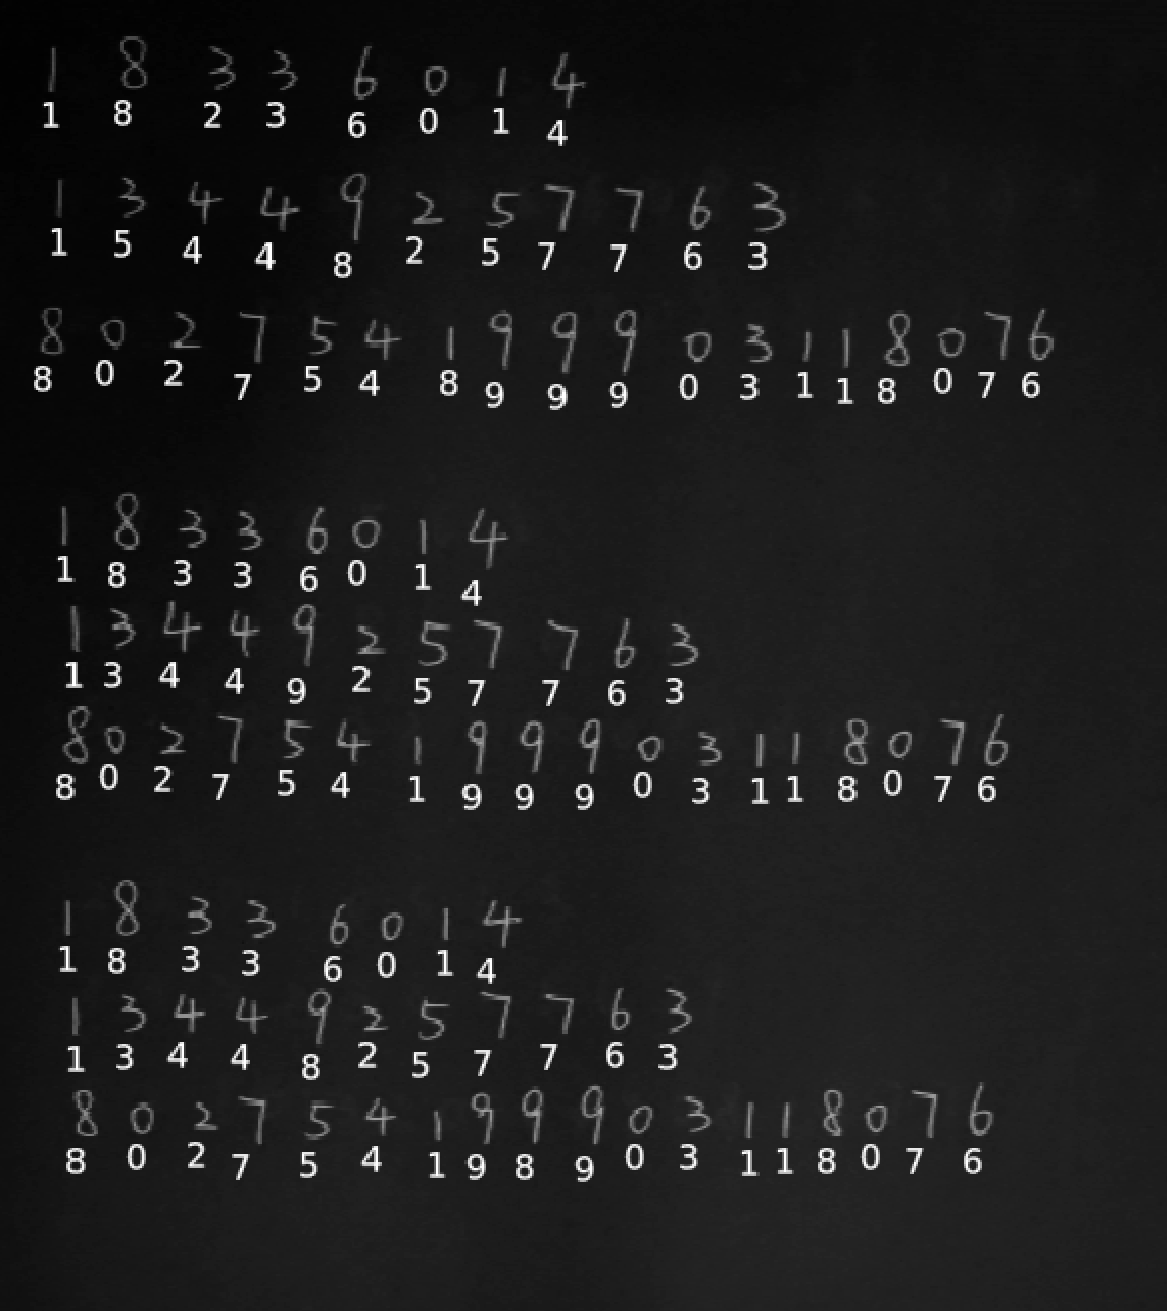 1 8 3 3 6 0 1 4
1 8 2 3 6 0 1 4
1 3 4 4 9 2 5 7 7 6 3
1 5 4 4 8 2 5 7 7 6 3
8 0 2 7 5 4 1 9 9 9 0 3 1 1 8 0 7 6
8 0 2 7 5 4 8 9 9 9 0 3 1 1 8 0 7 6
1 8 3 3 6 0 1 4
1 8 3 3 6 0 1 4
1 3 4 4 9 2 5 7 7 6 3
1 3 4 4 9 2 5 7 7 6 3
8 0 2 7 5 4 1 9 9 9 0 3 1 1 8 0 7 6
8 0 2 7 5 4 1 9 9 9 0 3 1 1 8 0 7 6
1 8 3 3 6 0 1 4
1 8 3 3 6 0 1 4
1 3 4 4 9 2 5 7 7 6 3
1 3 4 4 8 2 5 7 7 6 3
8 0 2 7 5 4 1 9 9 9 0 3 1 1 8 0 7 6
8 0 2 7 5 4 1 9 8 9 0 3 1 1 8 0 7 6